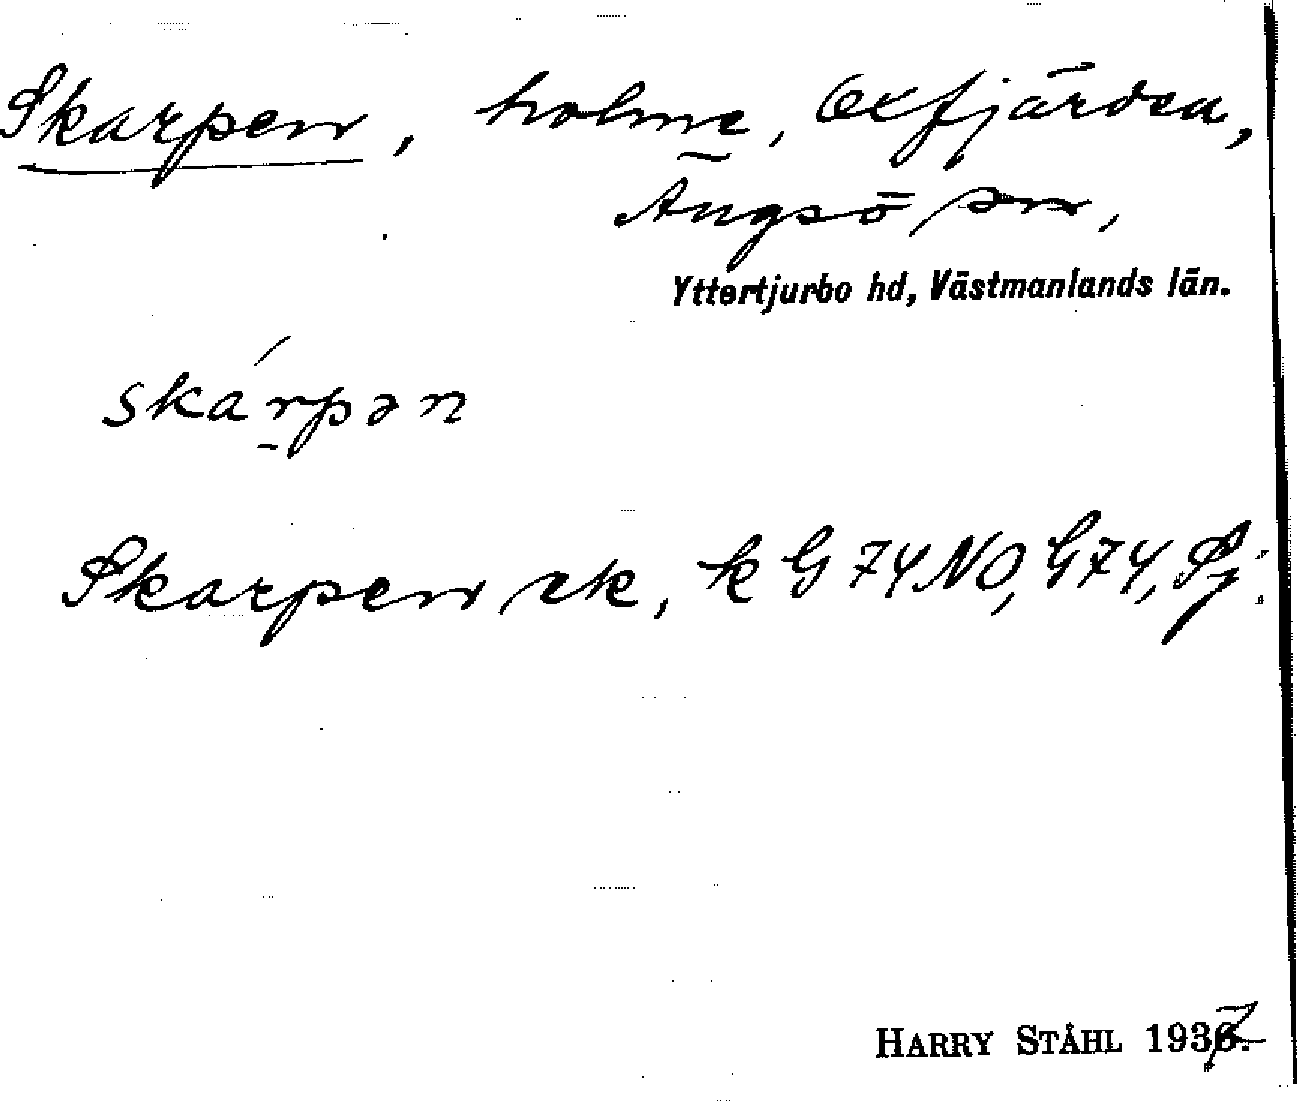 Skarpen, holme, Oxfjärden,
Ängsö sn,
Yttertjurbo hd, Västmanlands län.
skárpən
Skarpen ek, k G 74 NO, G 74, Sj.
HARRY STÅHL 1937.